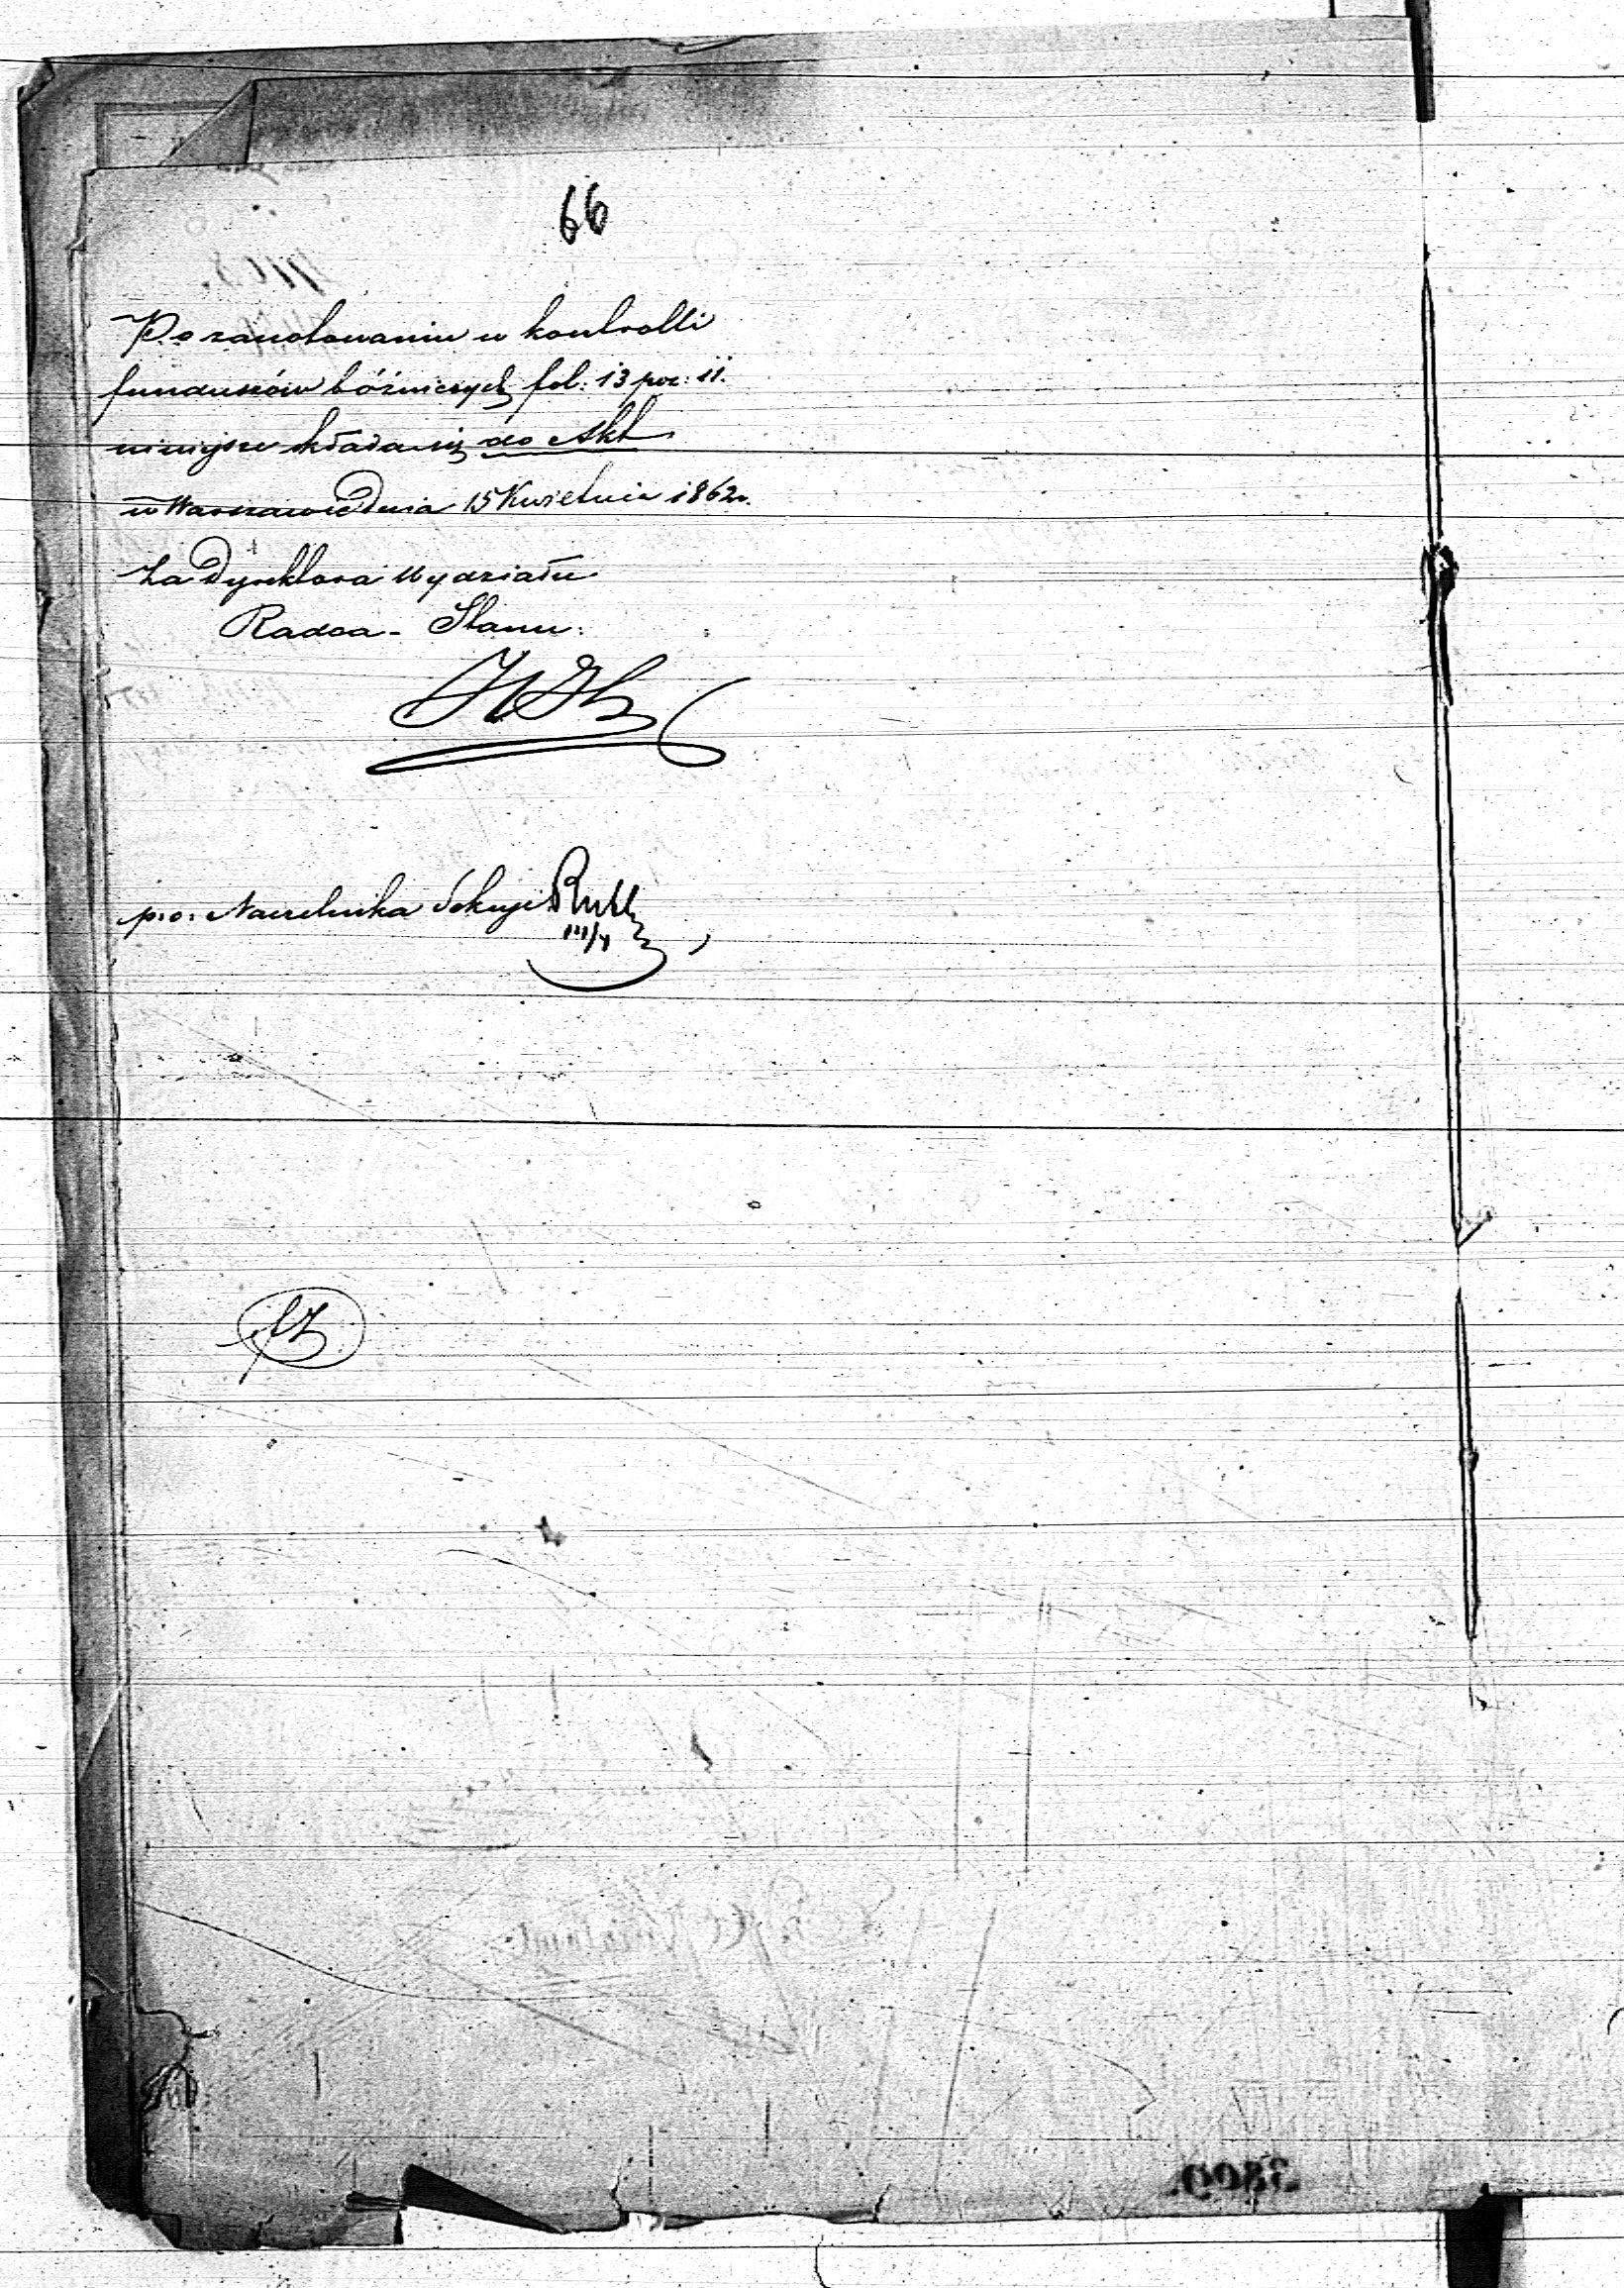 66
Po zanotowaniu w kontrolli
funduszów bóżniczych fol: 13 poz: 11.
niniejsze składa się do Akt
w Warszawie Dnia 15 Kwietnia 1862 r.
Za Dyrektora Wydziału
Radca - Stanu:
p.o: Naczelnika Sekcyi
3809.